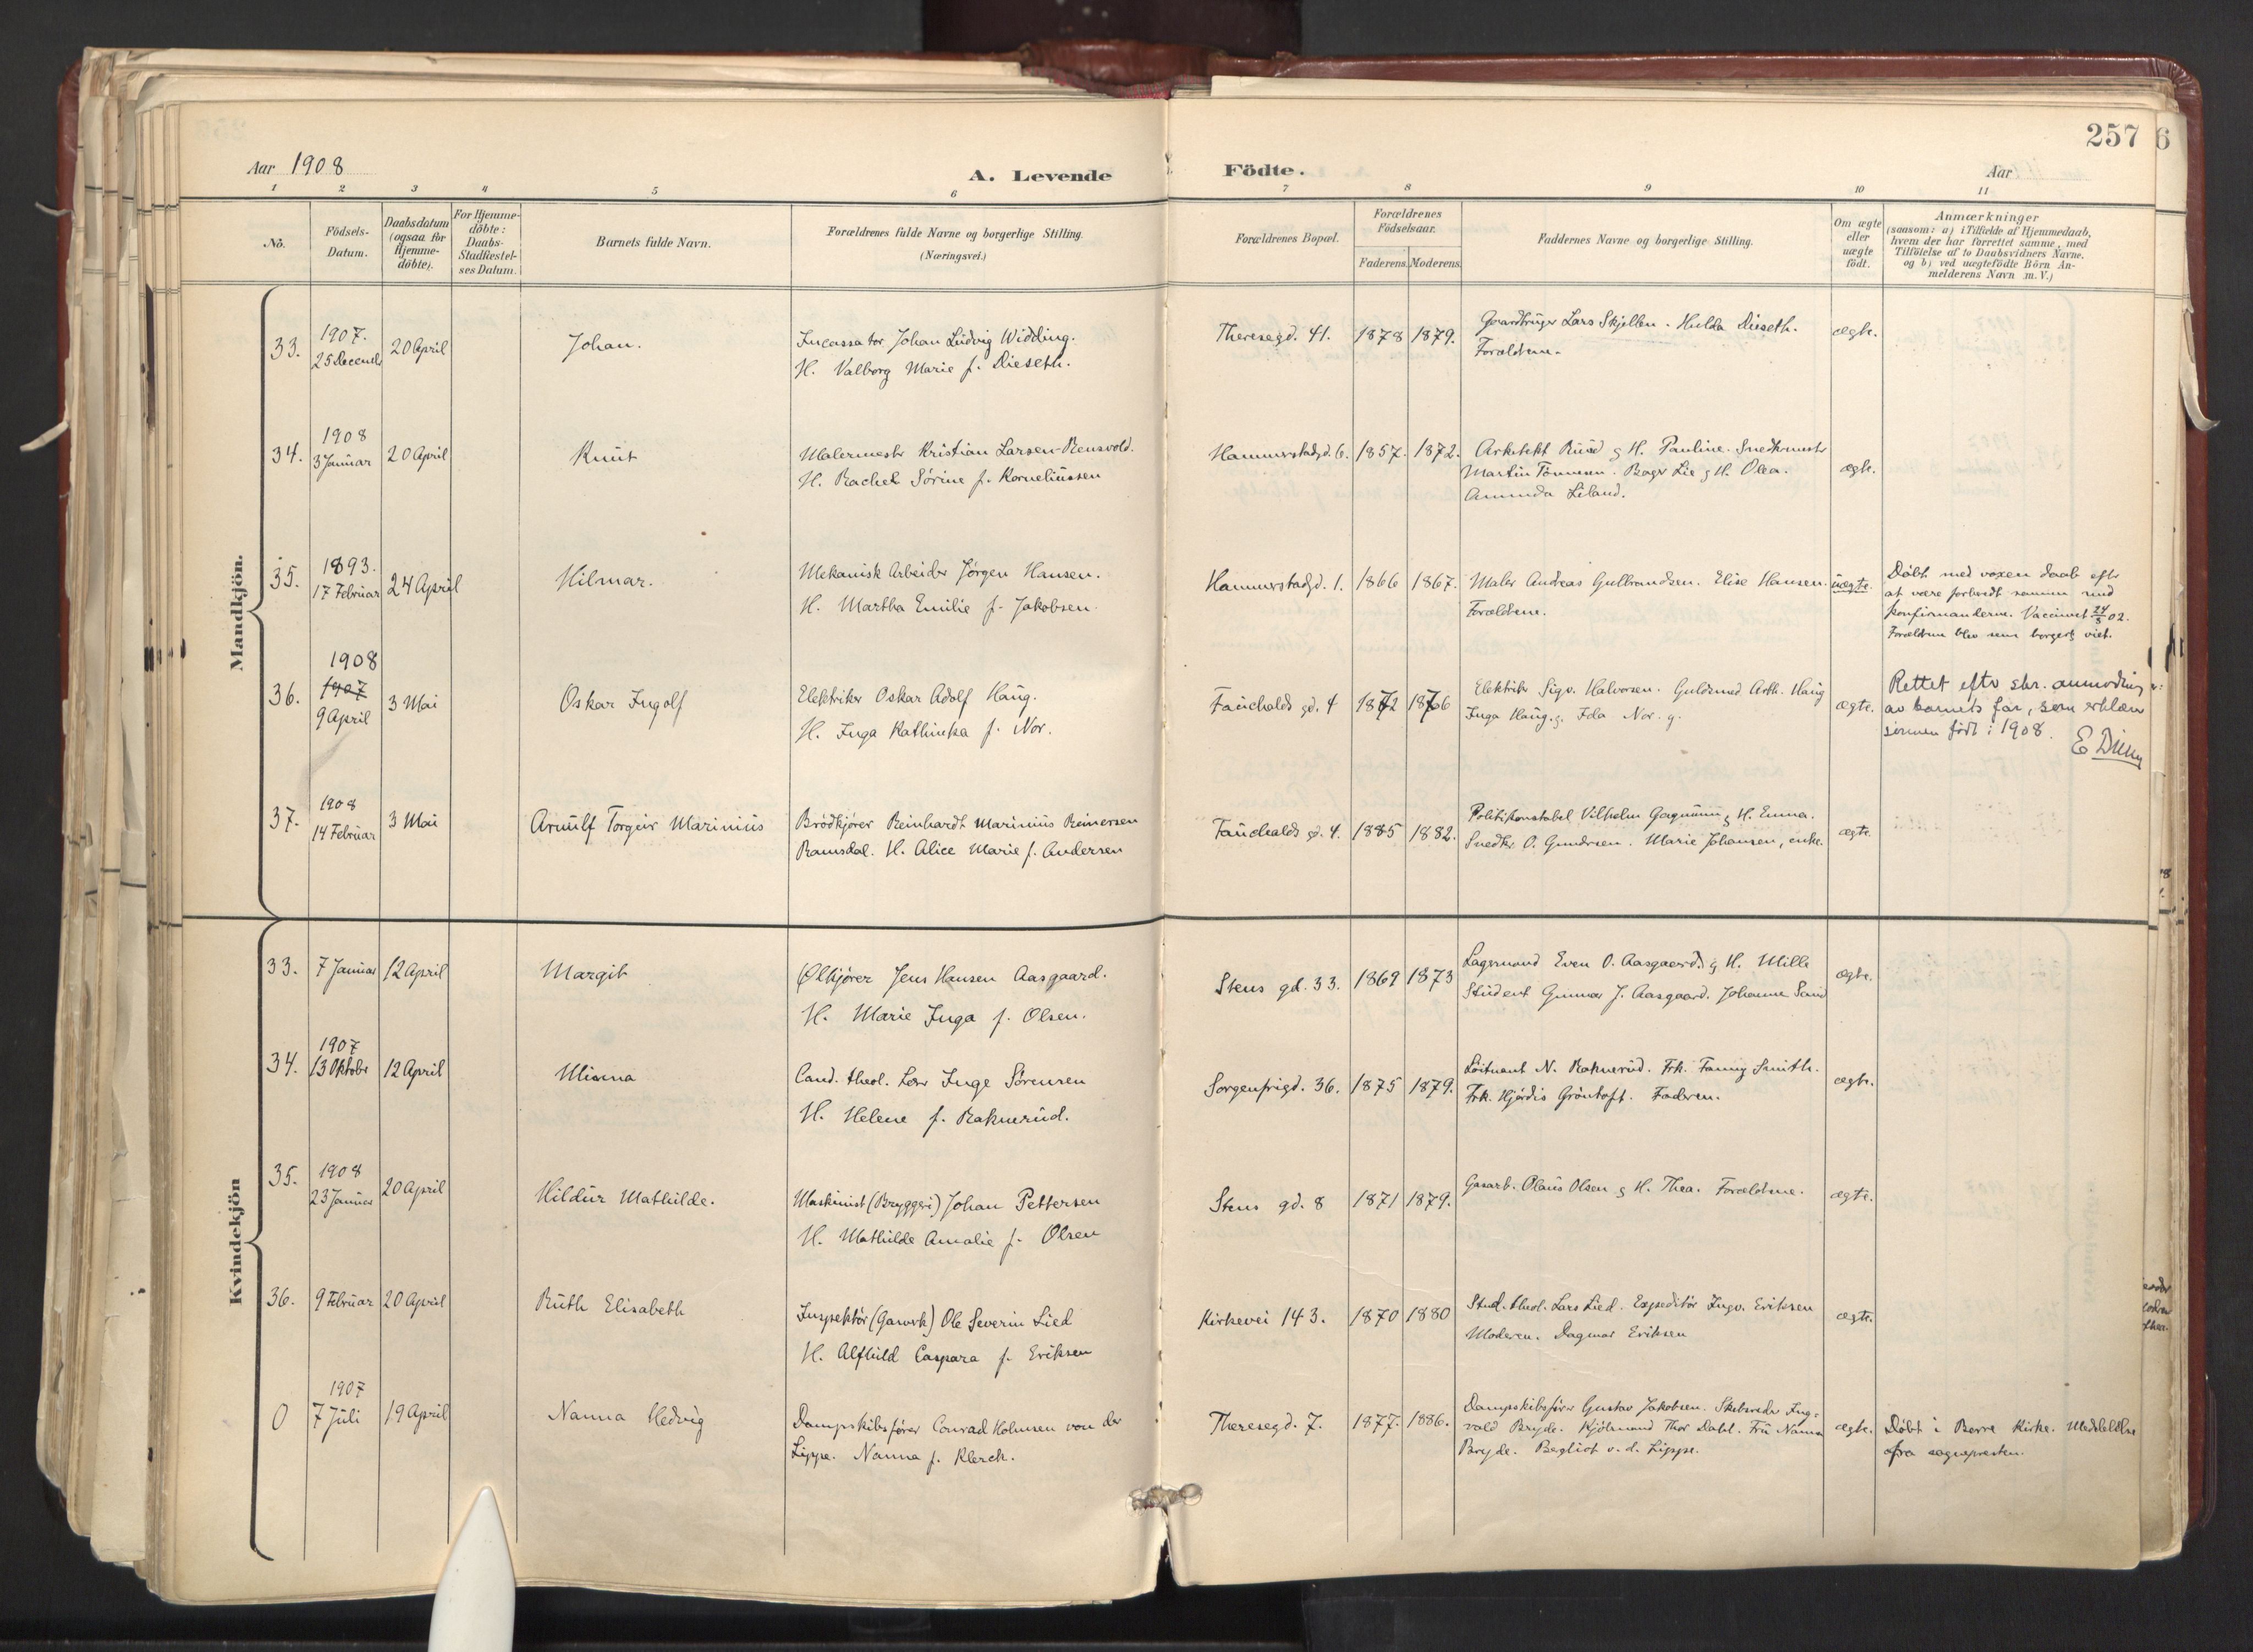 257
6
Aar 1908
A. Levende
Födte.
Aar
1 2 3 4 5 6 7 8 9 10 11
No.
Födsels-
Datum.
Daabsdatum
(ogsaa for
Hjemme-
döbte).
For Hjemme-
döbte:
Daabs-
Stadfæstel-
ses Datum.
Barnets fulde Navn.
Forældrenes fulde Navne og borgerlige Stilling.
(Næringsvei.)
Forældrenes Bopæl.
Forældrenes
Födselsaar.
Faderens. Moderens.
Faddernes Navne og borgerlige Stilling.
Om ægte
eller
uægte
födt.
Anmærkninger
(saasom: a) i Tilfælde af Hjemmedaab,
hvem der har forrettet samme, med
Tilföielse af to Daabsvidners Navne.
og b) ved uægtefödte Börn An-
melderens Navn m. V.)
Mandkjön.
33.
1907.
25 Decemb
20 April
Johan.
Incassator Johan Ludvig Widding.
H. Valborg Marie f. Dieseth.
Theresegd. 41.
1878 1879.
Lars Skjellen. Hulda Dieseth.
Forældrene.
ægte.
34.
1908
3 Januar
20 April
Knut
Malermestr Kristian Larsen-Rensvold.
H. Rachel Sörine f. Korneliussen
Hammerstadgd. 6.
1857. 1872.
Arkitekt Ruud g H. Pauline. Snedkermestr
Martin Tönnesen. Bager Lie g H. Olea.
Amunda Liland.
ægte.
35.
1893.
17 Februar
24 April
Hilmar.
Mekanisk Arbeider Jörgen Hansen.
H. Martha Emilie f. Jakobsen.
Hammerstadgd. 1.
1866 1867.
Maler Andreas Gulbrandsen. Elise Hansen.
Forældrene.
uægte.
Döbt med voxen daab eftr
at være forberedt sammen med
konfirmanderne. Vaccineret 24/3 02.
Forældrene blev senr borgerlg viet.
36.
1908
1907
9 April
3 Mai
Oskar Ingolf
Elektriker Oskar Adolf Haug.
H. Inga Kathinka f. Nor.
Fauchalds gd. 4
1872 1876
Elektrikr Sigv. Halvorsen. Guldsmed Arth. Haug
Inga Haug. g. Ida Nor. g.
ægte.
Rettet eftr skr. anmodning
av barnets far, som erklærer
sönnen födt i 1908.
37.
1908
14 Februar
3 Mai
Arnulf Torgeir Marinius
Brödkjörer Reinhardt Marinius Reinersen
Ramsdal. H. Alice Marie f. Andersen
Fauchalds gd. 4.
1885 1882.
Politikonstabel Vilhelm Gagnum g H. Emma.
Snedkr. O. Gundersen. Marie Johansen, enke.
ægte.
Kvindekjön
33.
7 Januar
12 April
Margit
Ølkjörer Jens Hansen Aasgaard.
H. Marie Inga f. Olsen.
Stens gd. 33.
1869 1873
Lagermand Even O. Aasgaard g H. Mille
Student Gunnar J. Aasgaard. Johanne
ægte.
34.
1907
13 Oktobr
12 April
Minna
Cand. theol. Lars Inge Sörensen
H. Helene f. Raknerud.
Sorgenfrigd. 36.
1875 1879.
Löitnant N. Raknerud. Frk. Fanny Smith.
Frk. Hjördis Gröntoft. Faderen.
ægte.
35.
1908
23 Januar
20 April
Hildur Mathilde.
Maskinist (Bryggeri) Johan Pettersen
H. Mathilde Amalie f. Olsen
Stens gd. 8
1871 1879.
Gasarb. Olaus Olsen g H. Thea. Forældrene.
ægte.
36.
9 Februar
20 April
Ruth Elisabeth
Inspektör (Gasverk) Ole Severin Lied
H. Alfhild Caspara f. Eriksen
Kirkevei 143.
1870 1880
Stud. theol. Lars Lied. Expeditör Ingv. Eriksen
Moderen. Dagmar Eriksen
ægte.
0
1907
7 Juli
19 April
Nanna Hedvig
Dampskibsförer Conrad Holmsen von der
Lippe. Nanna f. Klerck.
Theresegd. 7.
1877. 1886.
Dampskibsförer Gustav Jakobsen. Skibsreder Ing-
vald Bryde. Kjöbmand Thor Dahl. Fru Nanna
Bryde. Bergliot v. d. Lippe.
ægte.
Döbt i Borre Kirke. Meddelelse
fra sognepresten.